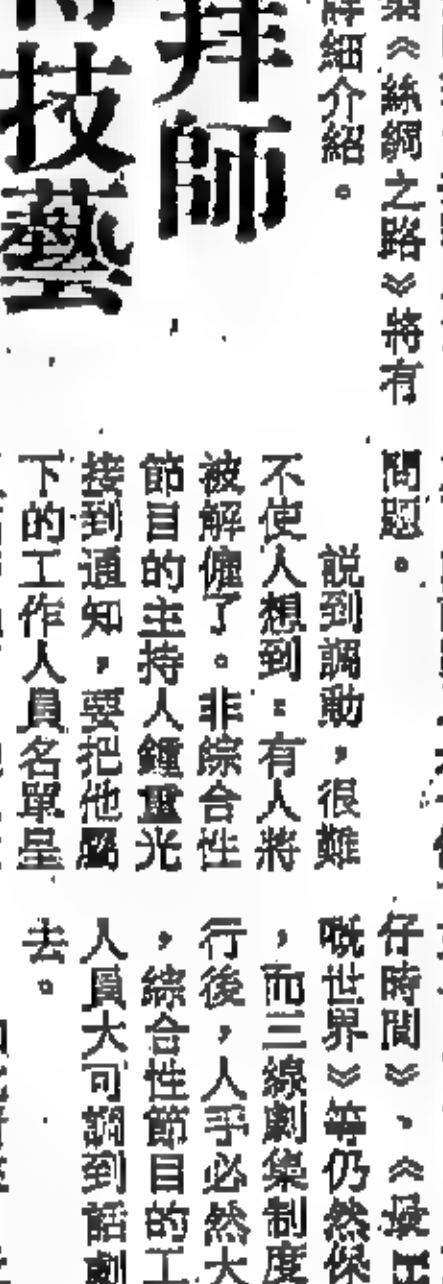 《絲綢之路》將有
詳細介紹。
拜師
技藝
問題。
說到調動，很難
不使人想到：有人將
被解僱了。非綜合性
節目的主持人鍾重光
接到通知，要把他屬
下的工作人員名單呈
仔時間》、《
嘅世界》等仍然保
，而三線劇集制度
行後，人手必然大
，綜合性節目的工
人員大可調到話劇
去。